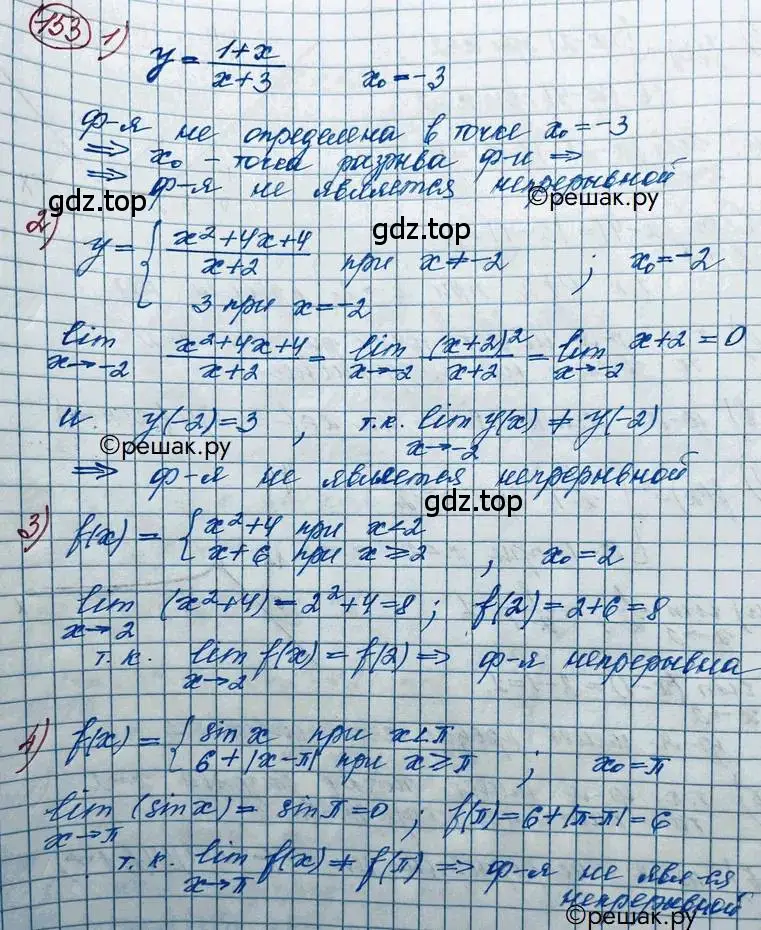 153 1) y = (1+x)/(x+3) x₀ = -3
ф-я не определена в точке x₀ = -3
⇒ x₀ - точка разрыва ф-и ⇒
⇒ ф-я не является непрерывной
gdz.top
©решак.ру
gdz.top
2) y = { (x²+4x+4)/(x+2) при x≠-2 ; x₀ = -2
3 при x = -2
lim x→-2 (x²+4x+4)/(x+2) = lim x→-2 (x+2)²/(x+2) = lim x→-2 x+2 = 0
и. y(-2) = 3 , т.к. lim x→-2 y(x) ≠ y(-2)
©решак.ру
⇒ ф-я не является непрерывной
gdz.top
3) f(x) = { x²+4 при x<2
x+6 при x⩾2 ; x₀ = 2
lim x→2 (x²+4) = 2²+4=8 ; f(2) = 2+6 = 8
т.к. lim x→2 f(x) = f(2) ⇒ ф-я непрерывна
4) f(x) = { sin x при x<π
6+|x-π| при x⩾π ; x₀ = π
lim x→π (sin x) = sin π = 0 ; f(π) = 6+|π-π| = 6
т.к. lim x→π f(x) ≠ f(π) ⇒ ф-я не явл-ся
непрерывной
©решак.ру